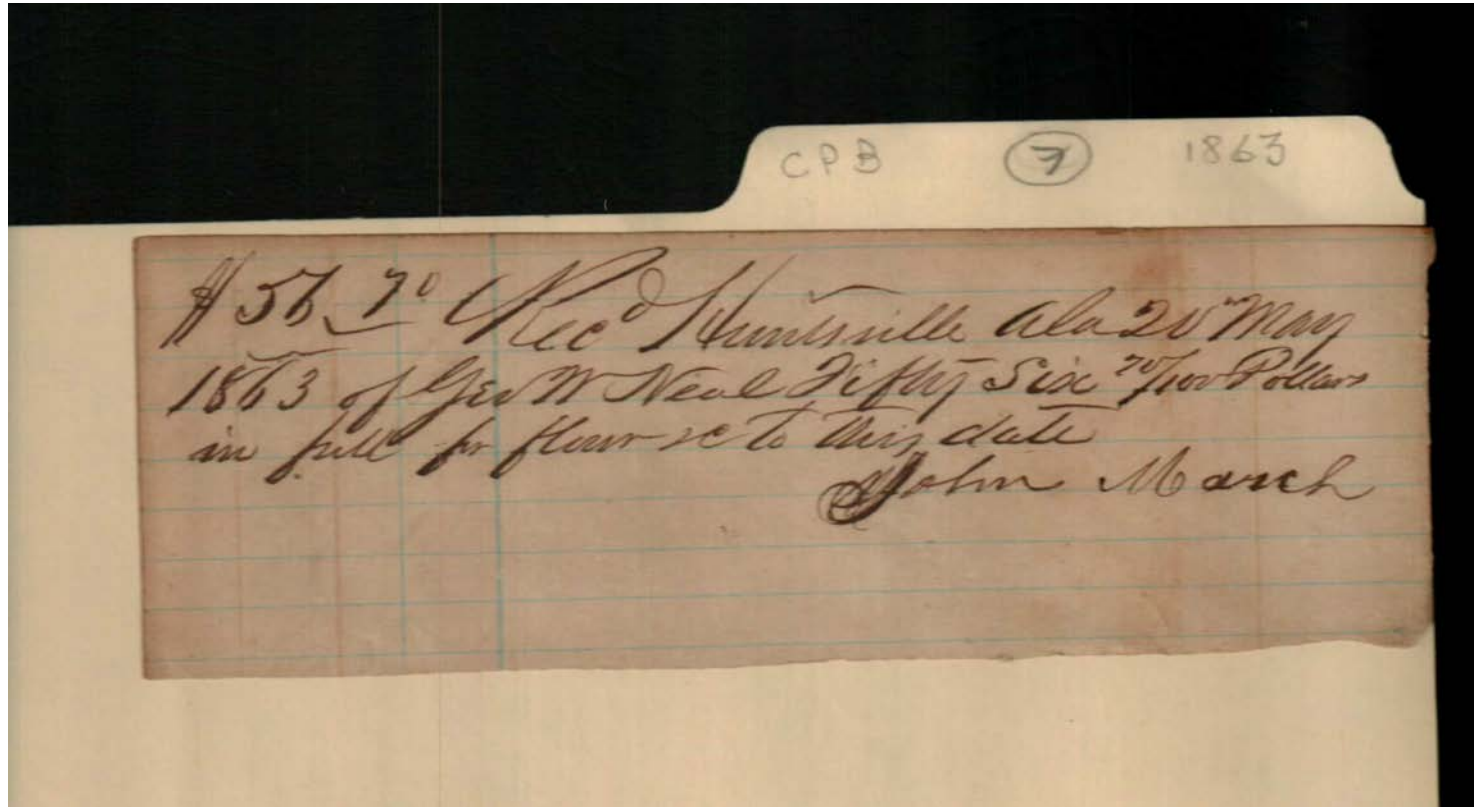 CPB 7 1863
$56 70 Recd Huntsville Ala 20th May
1863 of Geo W Neal Fifty Six 70/100 Dollars
in full for flour &c to this date
John March